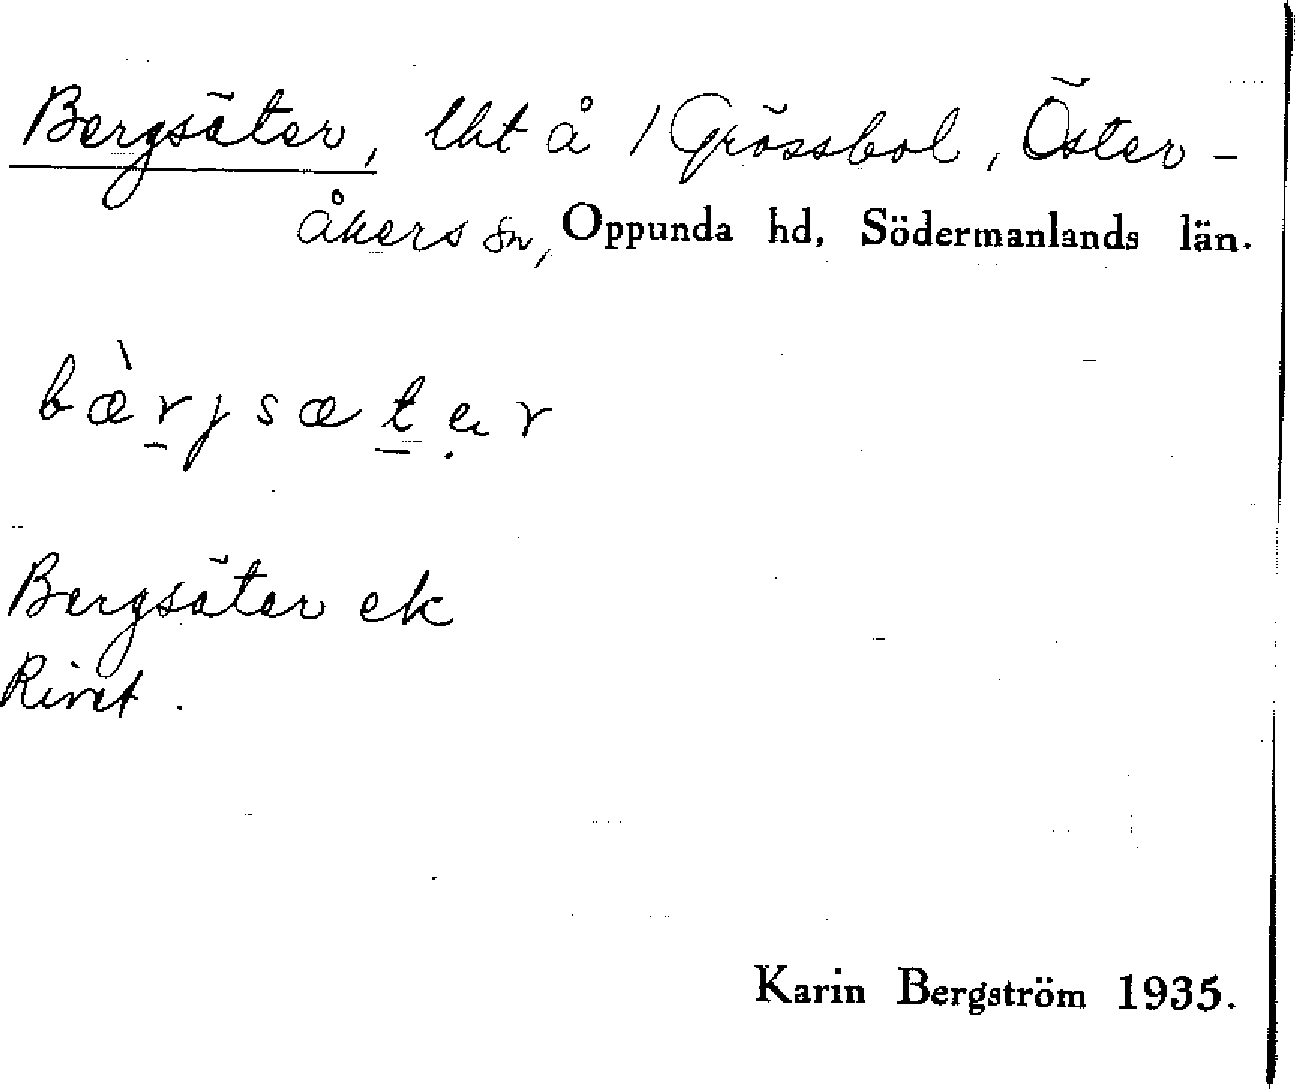 Bergsäter, lht å 1 Grössbol, Öster-
åkers sn, Oppunda hd, Södermanlands län.
bæ̀r̠jsæt̠ạr
Bergsäter ek
Rivet.
Karin Bergström 1935.